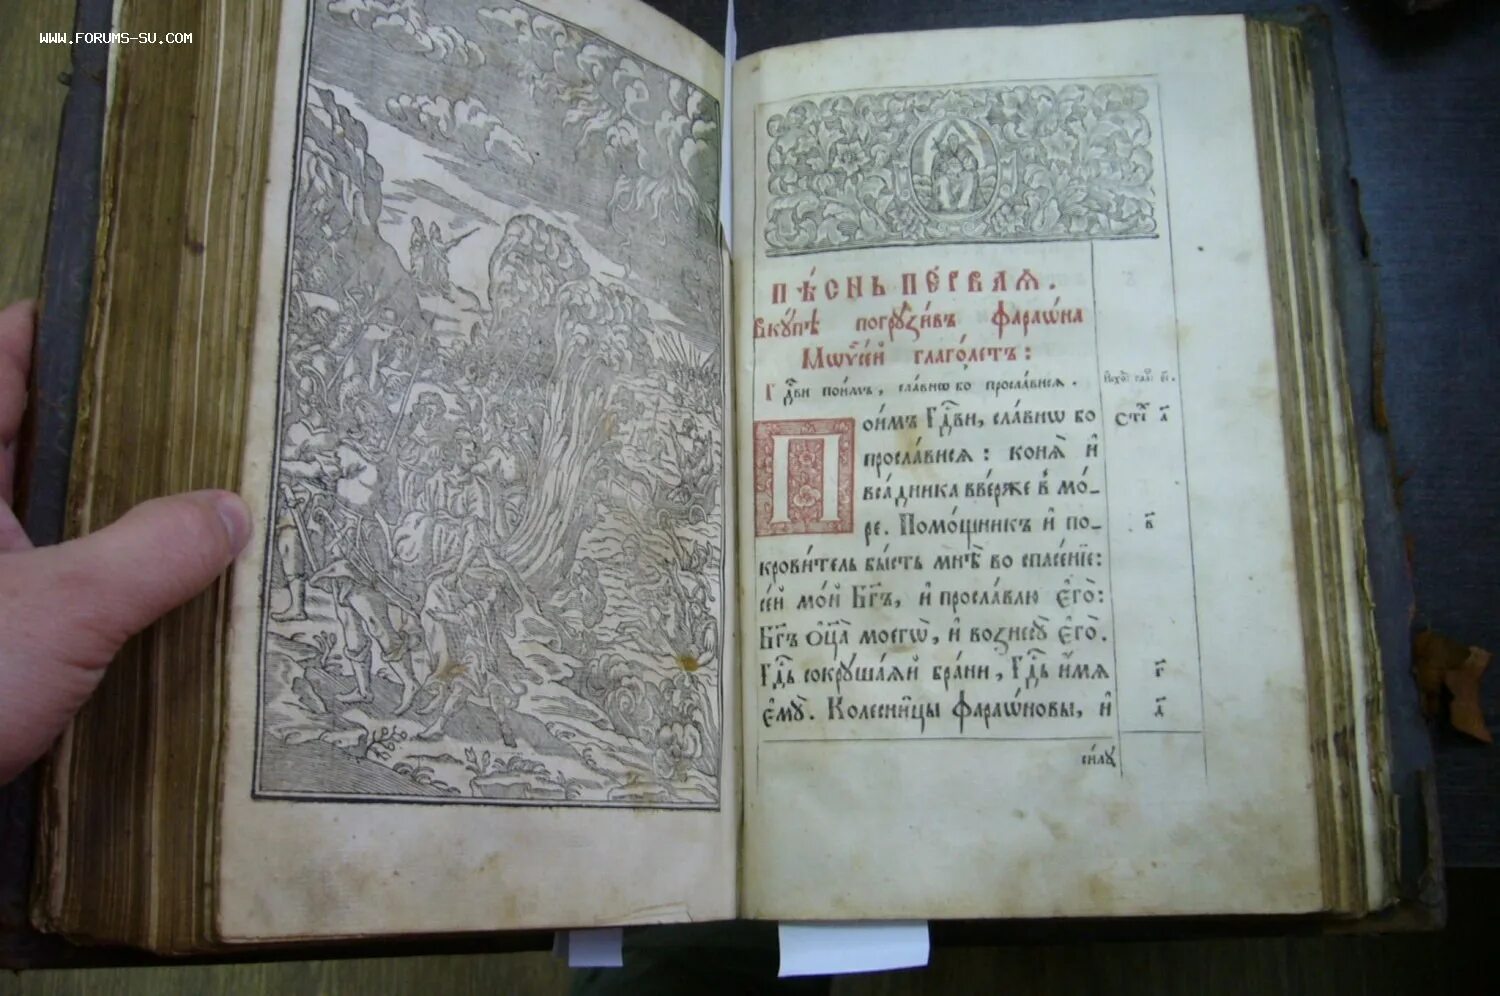 WWW.FORUMS-SU.COM
Пѣ́снь пе́рваѧ.
Вкꙋ́пѣ погрꙋзи́въ фараѡ́на
Мѡѷсе́й глаго́летъ:
Гдⷭ҇ви пои́мъ, сла́внѡ бо просла́висѧ.
Пои́мъ Гдⷭ҇ви, сла́внѡ бо
просла́висѧ: конѧ̀ и҆
вса́дника вве́рже в̾ мо́-
ре. Помо́щникъ и҆ по-
крови́тель бы́сть мнѣ̀ во спасе́нїе:
се́й мо́й Бг҃ъ, и҆ просла́влю є҆го̀:
Бг҃ъ ѻ҆ц҃а̀ моегѡ̀, и҆ вознесꙋ̀ є҆го̀.
Гдⷭ҇ь сокрꙋша́ѧй бра́ни, Гдⷭ҇ь и҆́мѧ
є҆мꙋ̀. Колесни́цы фараѡ́новы, и҆
си́лꙋ
Сті́ а҃
в҃
г҃
д҃